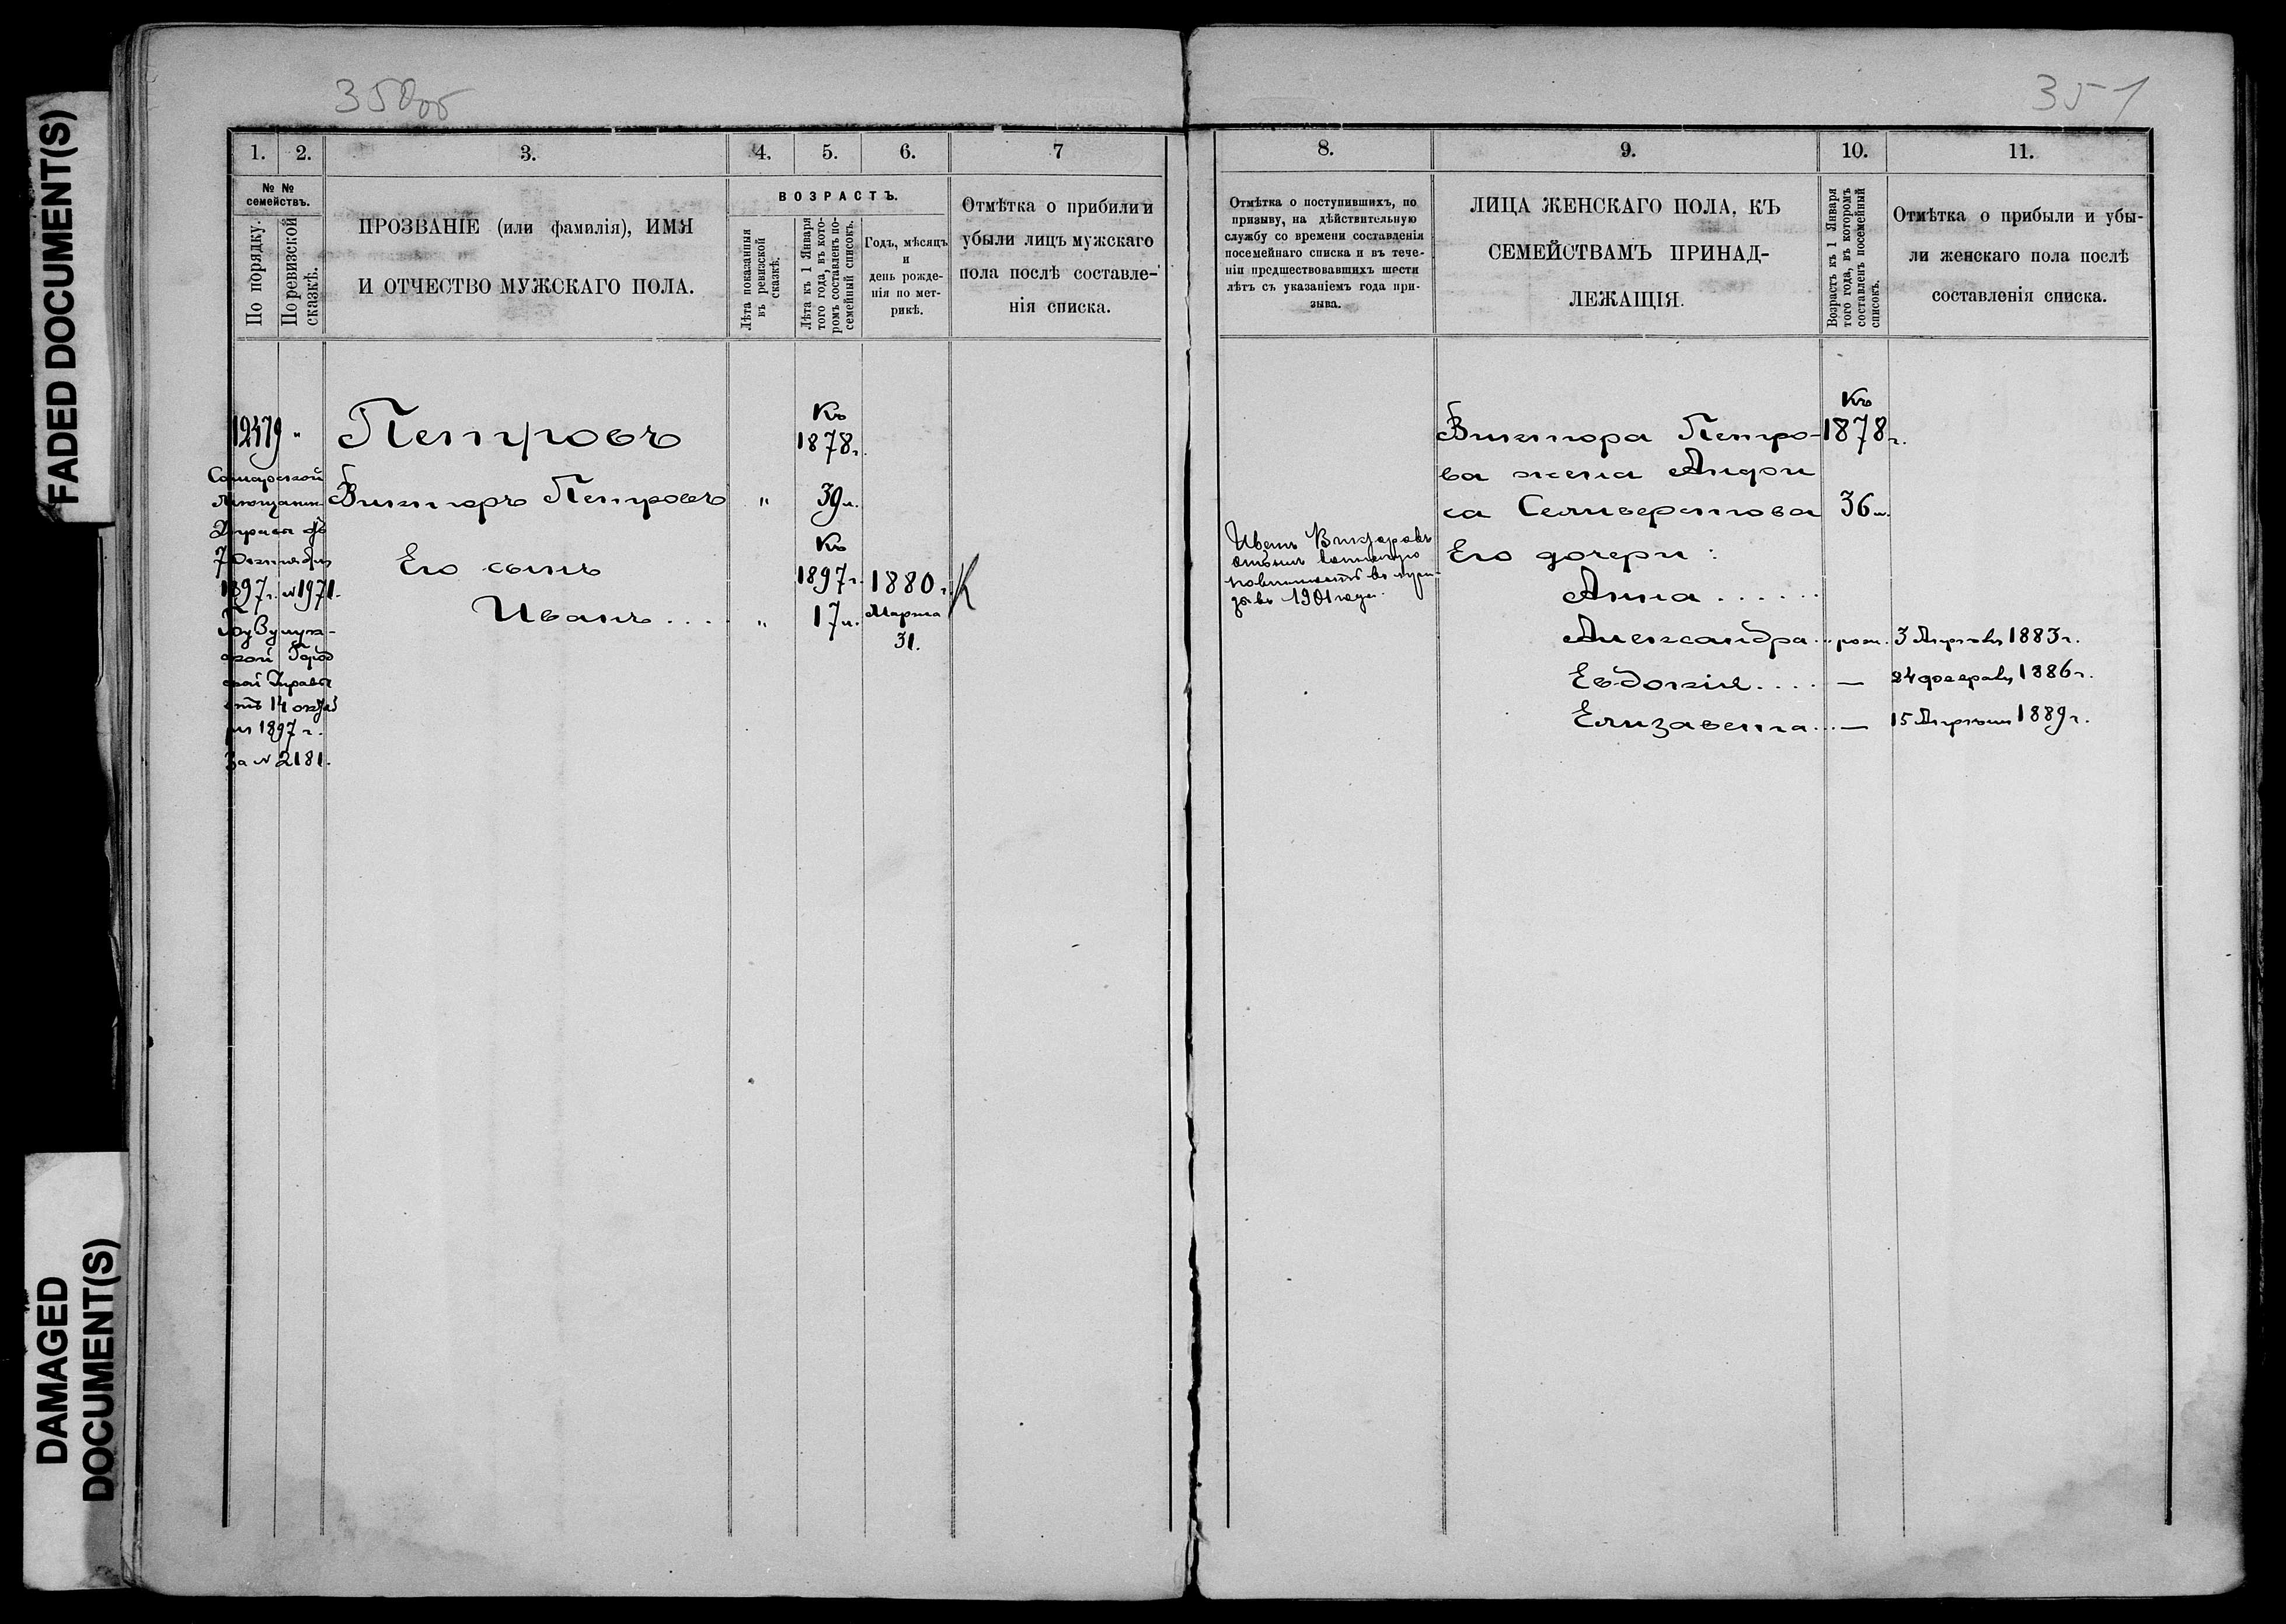 FADED DOCUMENT(S)
DAMAGED
DOCUMENT(S)
350об
1. 2. 3. 4. 5. 6. 7
№ №
семействъ.
По порядку.
По ревизской
сказкѣ.
ПРОЗВАНІЕ (или фамилія), ИМЯ
И ОТЧЕСТВО МУЖСКАГО ПОЛА.
ВОЗРАСТЪ.
Лѣта показанныя
въ ревизской
сказкѣ.
Лѣта къ 1 Января
того года, въ кото-
ромъ составленъ по-
семейный списокъ.
Годъ, мѣсяцъ
и
день рожде-
нія по мет-
рикѣ.
Отмѣтка о прибыли и
убыли лицъ мужскаго
пола послѣ составле-
нія списка.
12479 "
Петровъ
Къ
1878г.
Самарской
Мѣщанск.
Управы
7 Октября
1897г. № 1971.
Бузулук-
ской Город
ской Управы
отъ 14 октяб
ря 1897 г.
За № 2181.
Викторъ Петровъ " 39 л.
Его сынъ
Къ
1897 г. 1880 г.
Иванъ.... " 17 л. Марта
31.
К
351
8. 9. 10. 11.
Отмѣтка о поступившихъ, по
призыву, на дѣйствительную
службу со времени составленія
посемейнаго списка и въ тече-
ніи предшествовавшихъ шести
лѣтъ съ указаніемъ года при-
зыва.
ЛИЦА ЖЕНСКАГО ПОЛА, КЪ
СЕМЕЙСТВАМЪ ПРИНАД-
ЛЕЖАЩІЯ.
Возрастъ къ 1 Января
того года, въ которомъ
составленъ посемейный
списокъ.
Отмѣтка о прибыли и убы-
ли женскаго пола послѣ
составленія списка.
Къ
Виктора Петро- 1878 г.
ва жена Анфи
са Селиверстова 36 л.
Иванъ Викторовъ
отбылъ воинскую
повинность въ при-
зывъ 1901 года.
Его дочери:
Анна......
Александра... рож. 3 Апрѣля 1883 г.
Евдокія.... — 24 февраля 1886 г.
Елизавета... — 15 Апрѣля 1889 г.